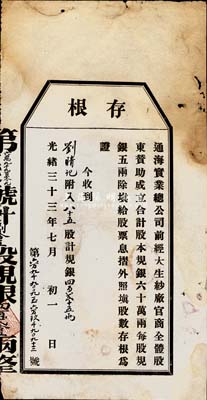 存根
通海實業總公司前經大生紗廠官商全體股
東贊助成立合計股本規銀六十萬兩每股規
銀五兩除填給股票息摺外照填股數存根為
證
今收到
劉晴記附入八十五股計規銀四百二十五兩
光緒三十三年七月 初一 日
號計
股規銀
兩整